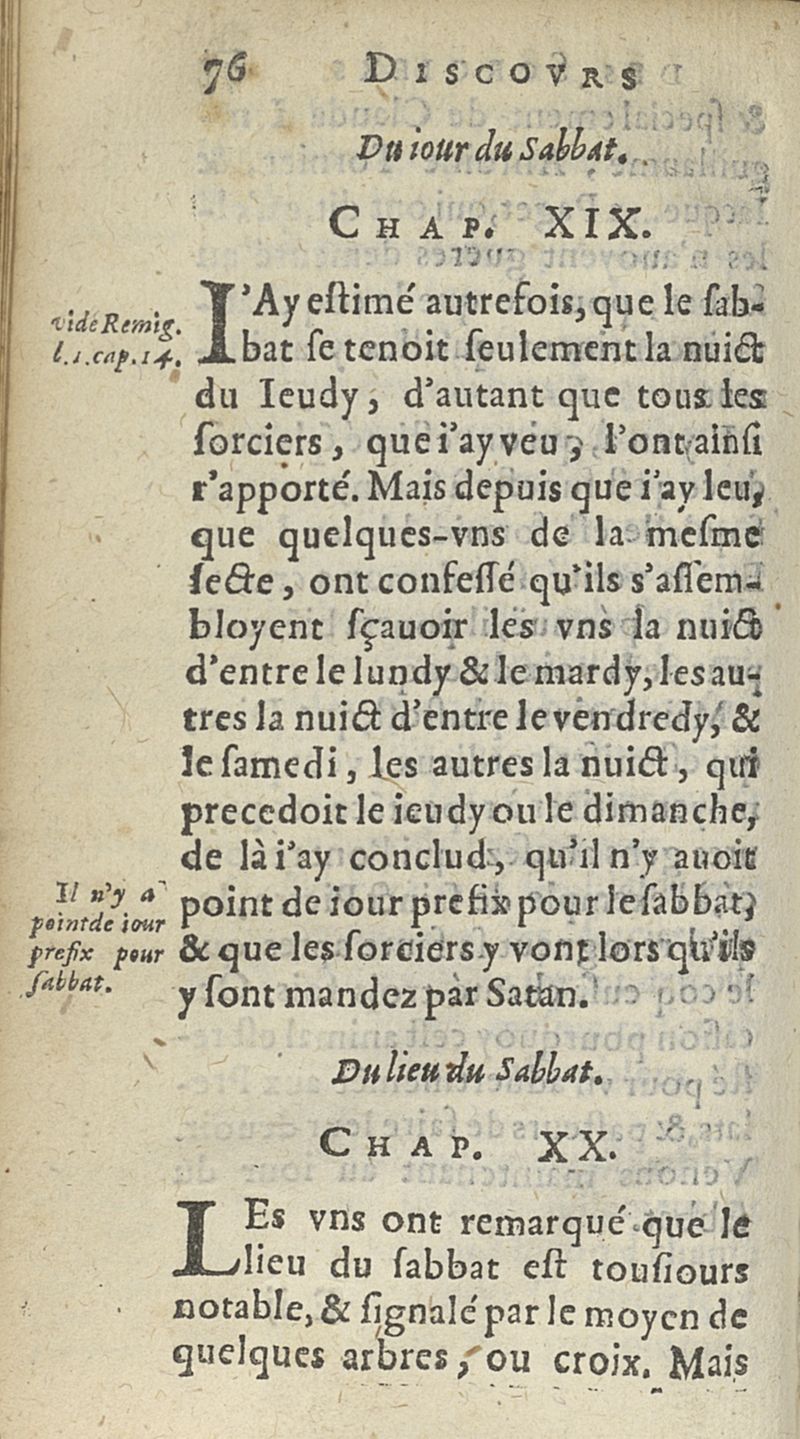 76 DISCOVRS
Du iour du Sabbat.
CHAP. XIX.
vide Remig.
l.1.cap.14.
I'Ay eſtimé autrefois, que le ſab-
bat ſe tenoit ſeulement la nuict
du Ieudy, d'autant que tous les
ſorciers, que i'ay veu, l'ont ainſi
r'apporté. Mais depuis que i'ay leu,
que quelques-vns de la meſme
ſecte, ont confeſſé qu'ils s'aſſem-
bloyent ſçauoir les vns la nuict
d'entre le lundy & le mardy, les au-
tres la nuict d'entre le vendredy, &
le ſamedi, les autres la nuict, qui
precedoit le ieudy ou le dimanche,
de là i'ay conclud, qu'il n'y auoit
point de iour prefix pour le ſabbat,
& que les ſorciers y vont lors qu'ils
y ſont mandez par Satan.
Il n'y a
point de iour
prefix pour
ſabbat.
Du lieu du Sabbat.
CHAP. XX.
LEs vns ont remarqué que le
lieu du ſabbat eſt touſiours
notable, & ſignalé par le moyen de
quelques arbres, ou croix. Mais